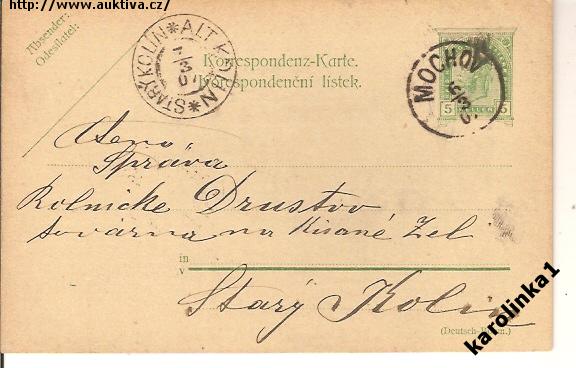 http://www.auktiva.cz/
Absender:
Odesílatel:
STARÝ KOLÍN * ALT KOLIN *
7/3 01
Korrespondenz-Karte.
Korespondenční lístek.
MOCHOV
6/3 01
5 5
Správa
Rolnicke Drustvo
tovarna na Kisané Zel
in
v
Starý Kolin
(Deutsch-Böhm.)
karolinka1